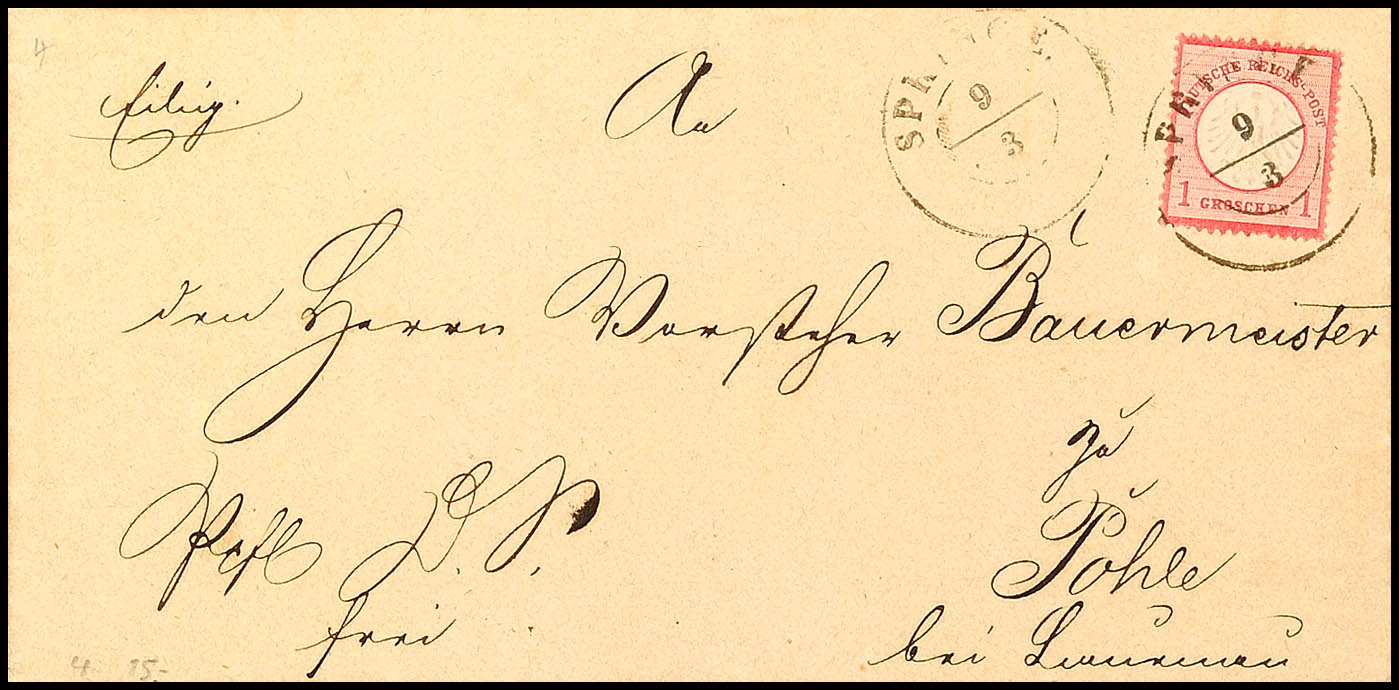 4
Eilig.
An
SPRINGE.
9
3
DEUTSCHE REICHS-POST
SPRINGE
9
3
1 GROSCHEN 1
den Herrn Vorsteher Bauermeister
zu
D. S.
Pohle
frei
bei Lauenau
4 15.-